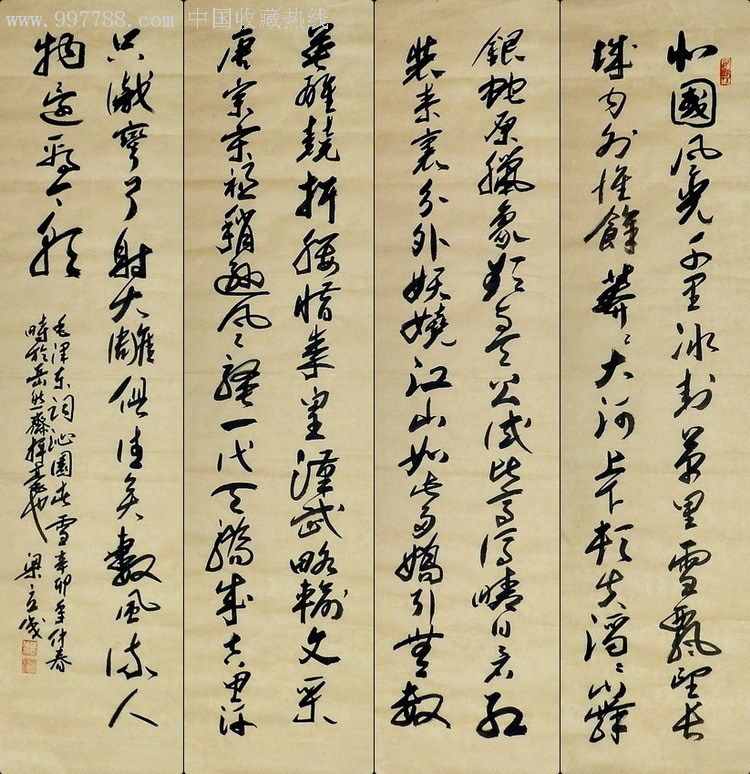 www.997788.com 中国收藏热线
北國風光千里冰封萬里雪飄望長
城内外惟餘莽々大河上下頓失滔々山舞
銀蛇原臘象欲與天公試比高須晴日看紅
裝素裹分外妖嬈江山如此多嬌引無數
英雄競折腰惜秦皇漢武略輸文采
唐宗宋祖稍遜風々騷一代天驕成吉思汗
只識彎弓射大雕俱往矣數風流人
物還看今朝
毛澤東詞沁園春雪辛卯年仲春
時於岳然齋揮毫也
梁立